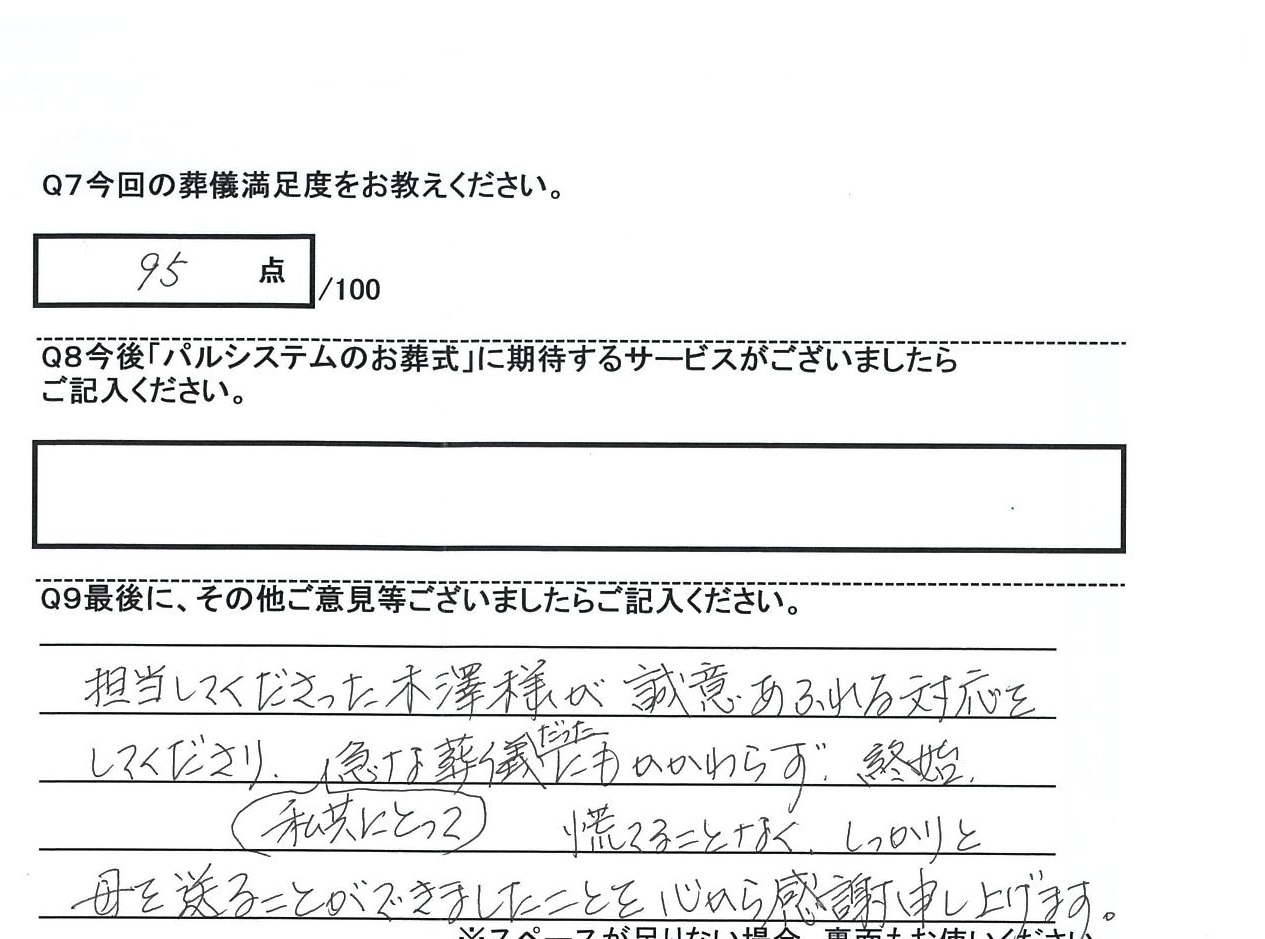 Q7今回の葬儀満足度をお教えください。
95 点 /100
Q8今後「パルシステムのお葬式」に期待するサービスがございましたら
ご記入ください。
Q9最後に、その他ご意見等ございましたらご記入ください。
担当してくださった木澤様が誠意あふれる対応を
してくださり、急な葬儀だったにもかかわらず、終始、
私共にとって 慌てることなく、しっかりと
母を送ることができましたことを心から感謝申し上げます。
※スペースが足りない場合、裏面もお使いください